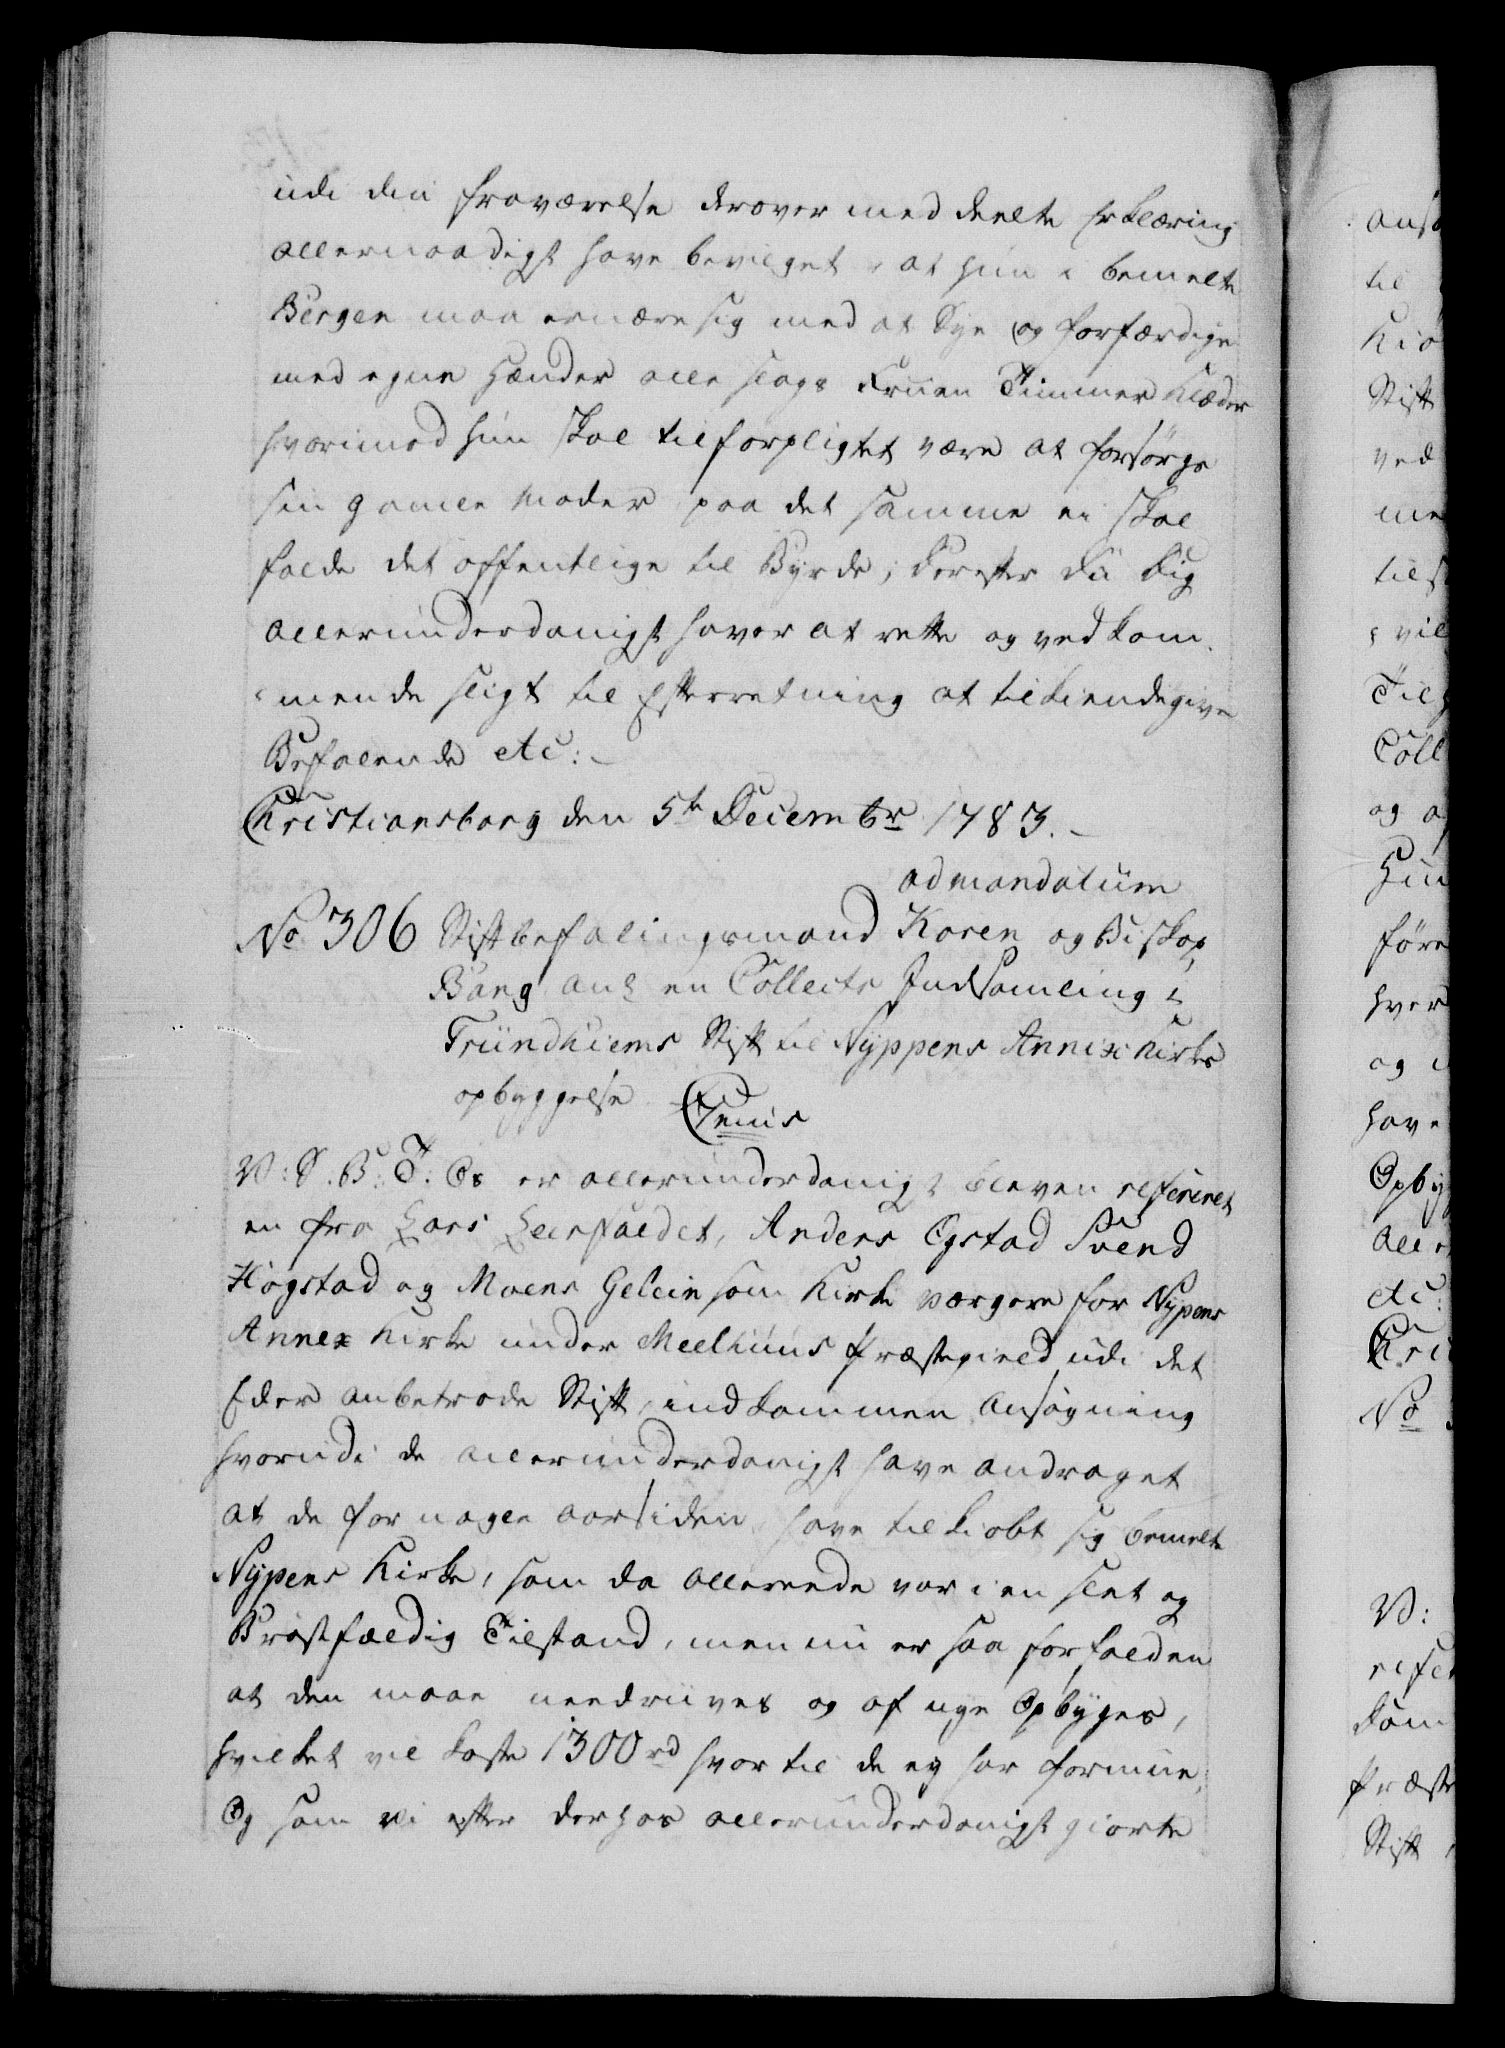 udi din fraværelse derover meddeelte Erklæring
allernaadigst have bevilget, at hun i bemelte
Bergen maa ernære sig med at Sye og forfærdige
med egne Hænder alle slags Fruen Timmer Klæder
hvorimod hun skal tilforpligtet være at forsørge
sin gamle Moder paa det samme ei skal
falde det offentlige til Byrde; derefter du dig
allerunderdanigst haver at rette og vedkom-
mende sligt til Efterretning at tilkiendegive
Befalende etc:
Christiansborg den 5te Decembr 1783.
ad mandatum
No 306 Stiftbefalingsmand Koren og Biskop
Bang anl en Collects Indsamling i
Trundhiems Stift til Nyppens Annex Kirkes
opbyggelse
V: S. B: T: Os er allerunderdanigst bleven refereret
en fra Lars Leerfaldet, Anders Ogstad Svend
Høgstad og Moens Gelein som Kirke værgere for Nypens
Annex Kirke under Meelhuus Præstegield udi det
Eder anbetroede Stift, indkommen Ansøgning
hvorudi de allerunderdanigst have andraget
at de for nogle aar siden have tilkiøbt sig bemelte
Nypens Kirke, som da allerede var i en slet og
Brøstfældig Tilstand, men nu er saa forfalden
at den maae needriives og af nye Opbyges,
hvilket vil koste 1300 rd hvortil de ey har formue,
Og som vi efter derhos allerunderdanigst giorte